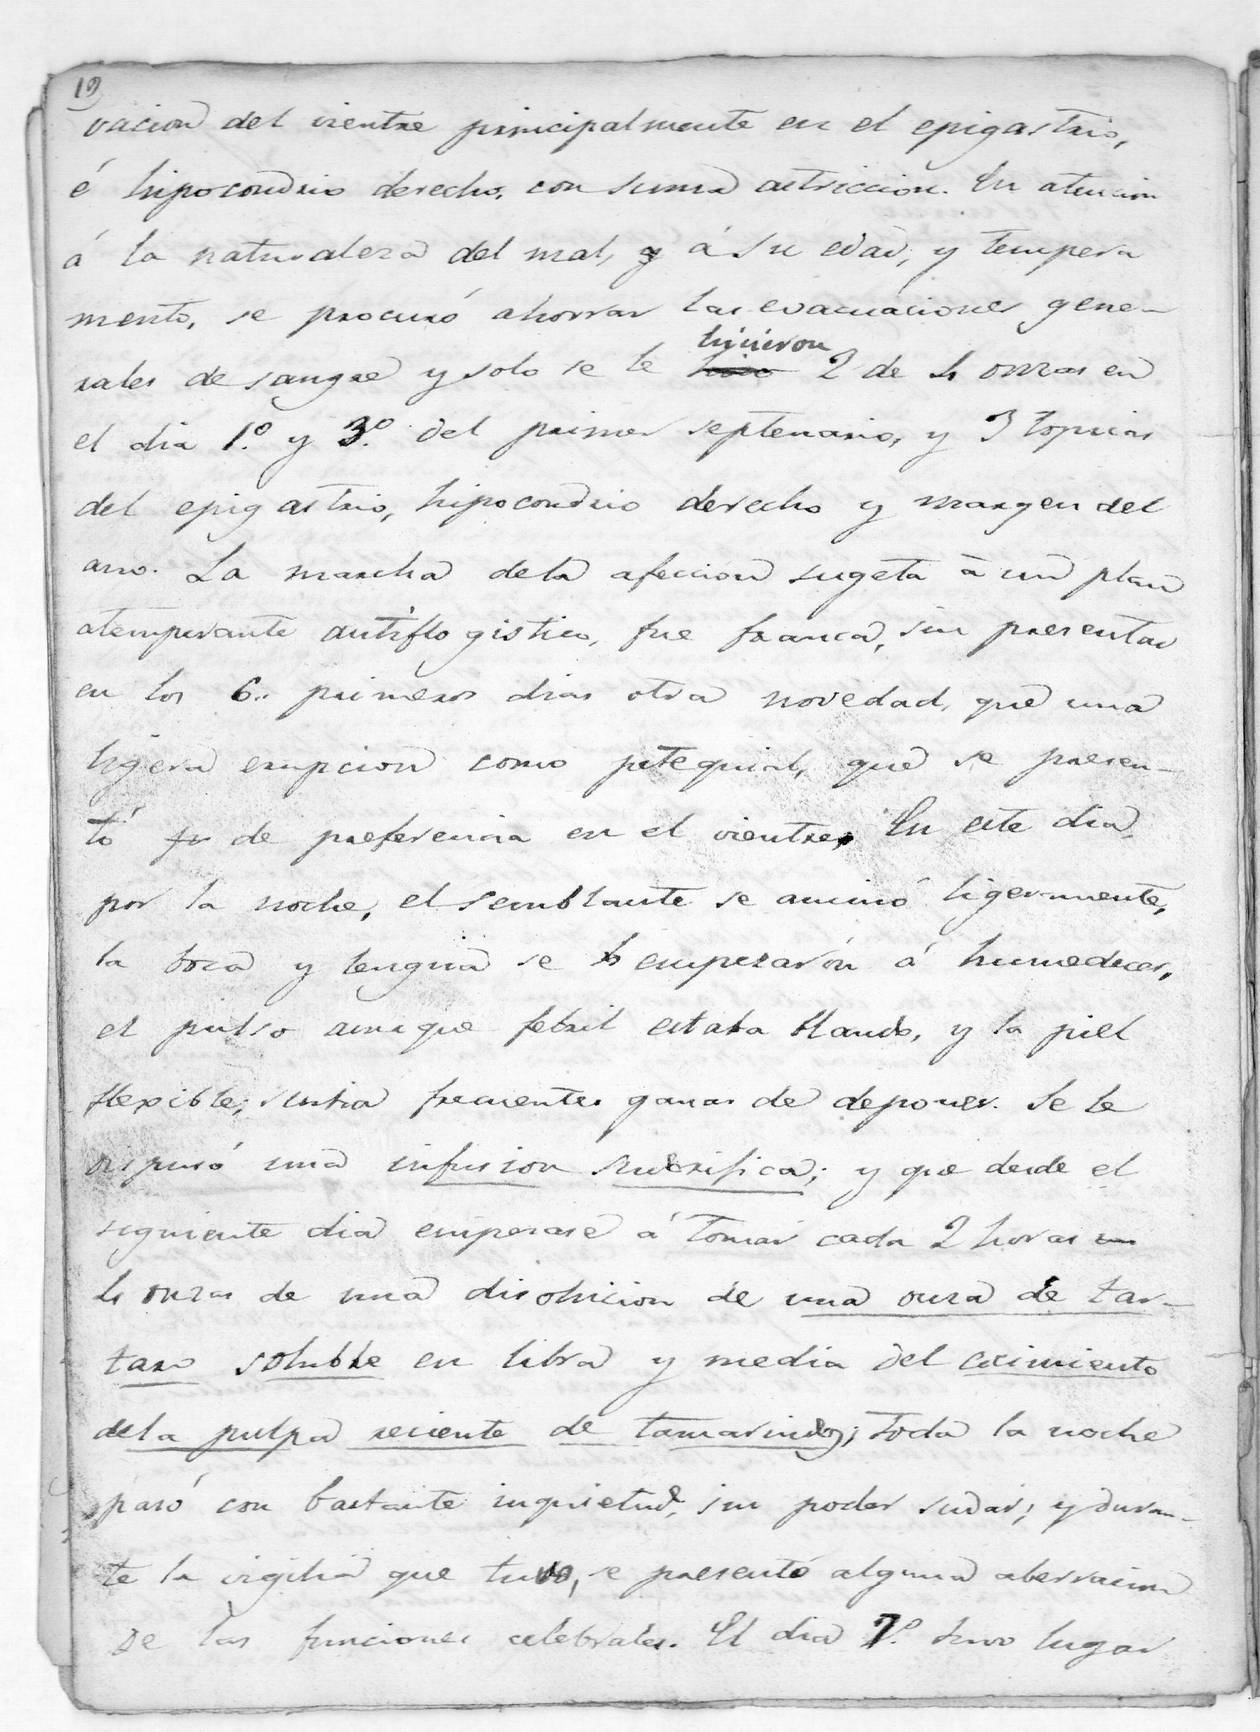 19
vacion del vientre principalmente en el epigastrio,
é hipocondrio derecho, con suma astriccion. En atencion
á la naturaleza del mal, y á su edad, y tempera
mento, se procuró ahorrar las evacuaciones gene-
rales de sangre y solo se le hicieron 2 de 4 onzas en
el dia 1.º y 3.º del primer septenario, y 3 topicas
del epigastrio, hipocondrio derecho y margen del
ano. La marcha dela afeccion sugeta à un plan
atemperante antiflogistico, fue franca, sin presentar
en los 6.. primeros dias otra novedad, que una
ligera erupcion como petequial, que se presen-
tó de preferencia en el vientre. En este dia,
por la noche, el semblante se animó ligeramente,
la boca y lengua se empezarón á humedecer,
el pulso aunque febril estaba blando, y la piel
flexible; sentia frecuentes ganas de deponer. Se le
dispusó una infusion sudorifica; y que desde el
siguiente dia empezase á tomar cada 2 horas
4 onzas de una disolucion de una onza de tar-
taro soluble en libra y media del cocimiento
dela pulpa reciente de tamarindos; toda la noche
pasó con bastante inquietud, sin poder sudar; y duran-
te la vigilia que tuvo, se presentó alguna aberracion
de las funciones celebrales. El dia 7.º tuvo lugar